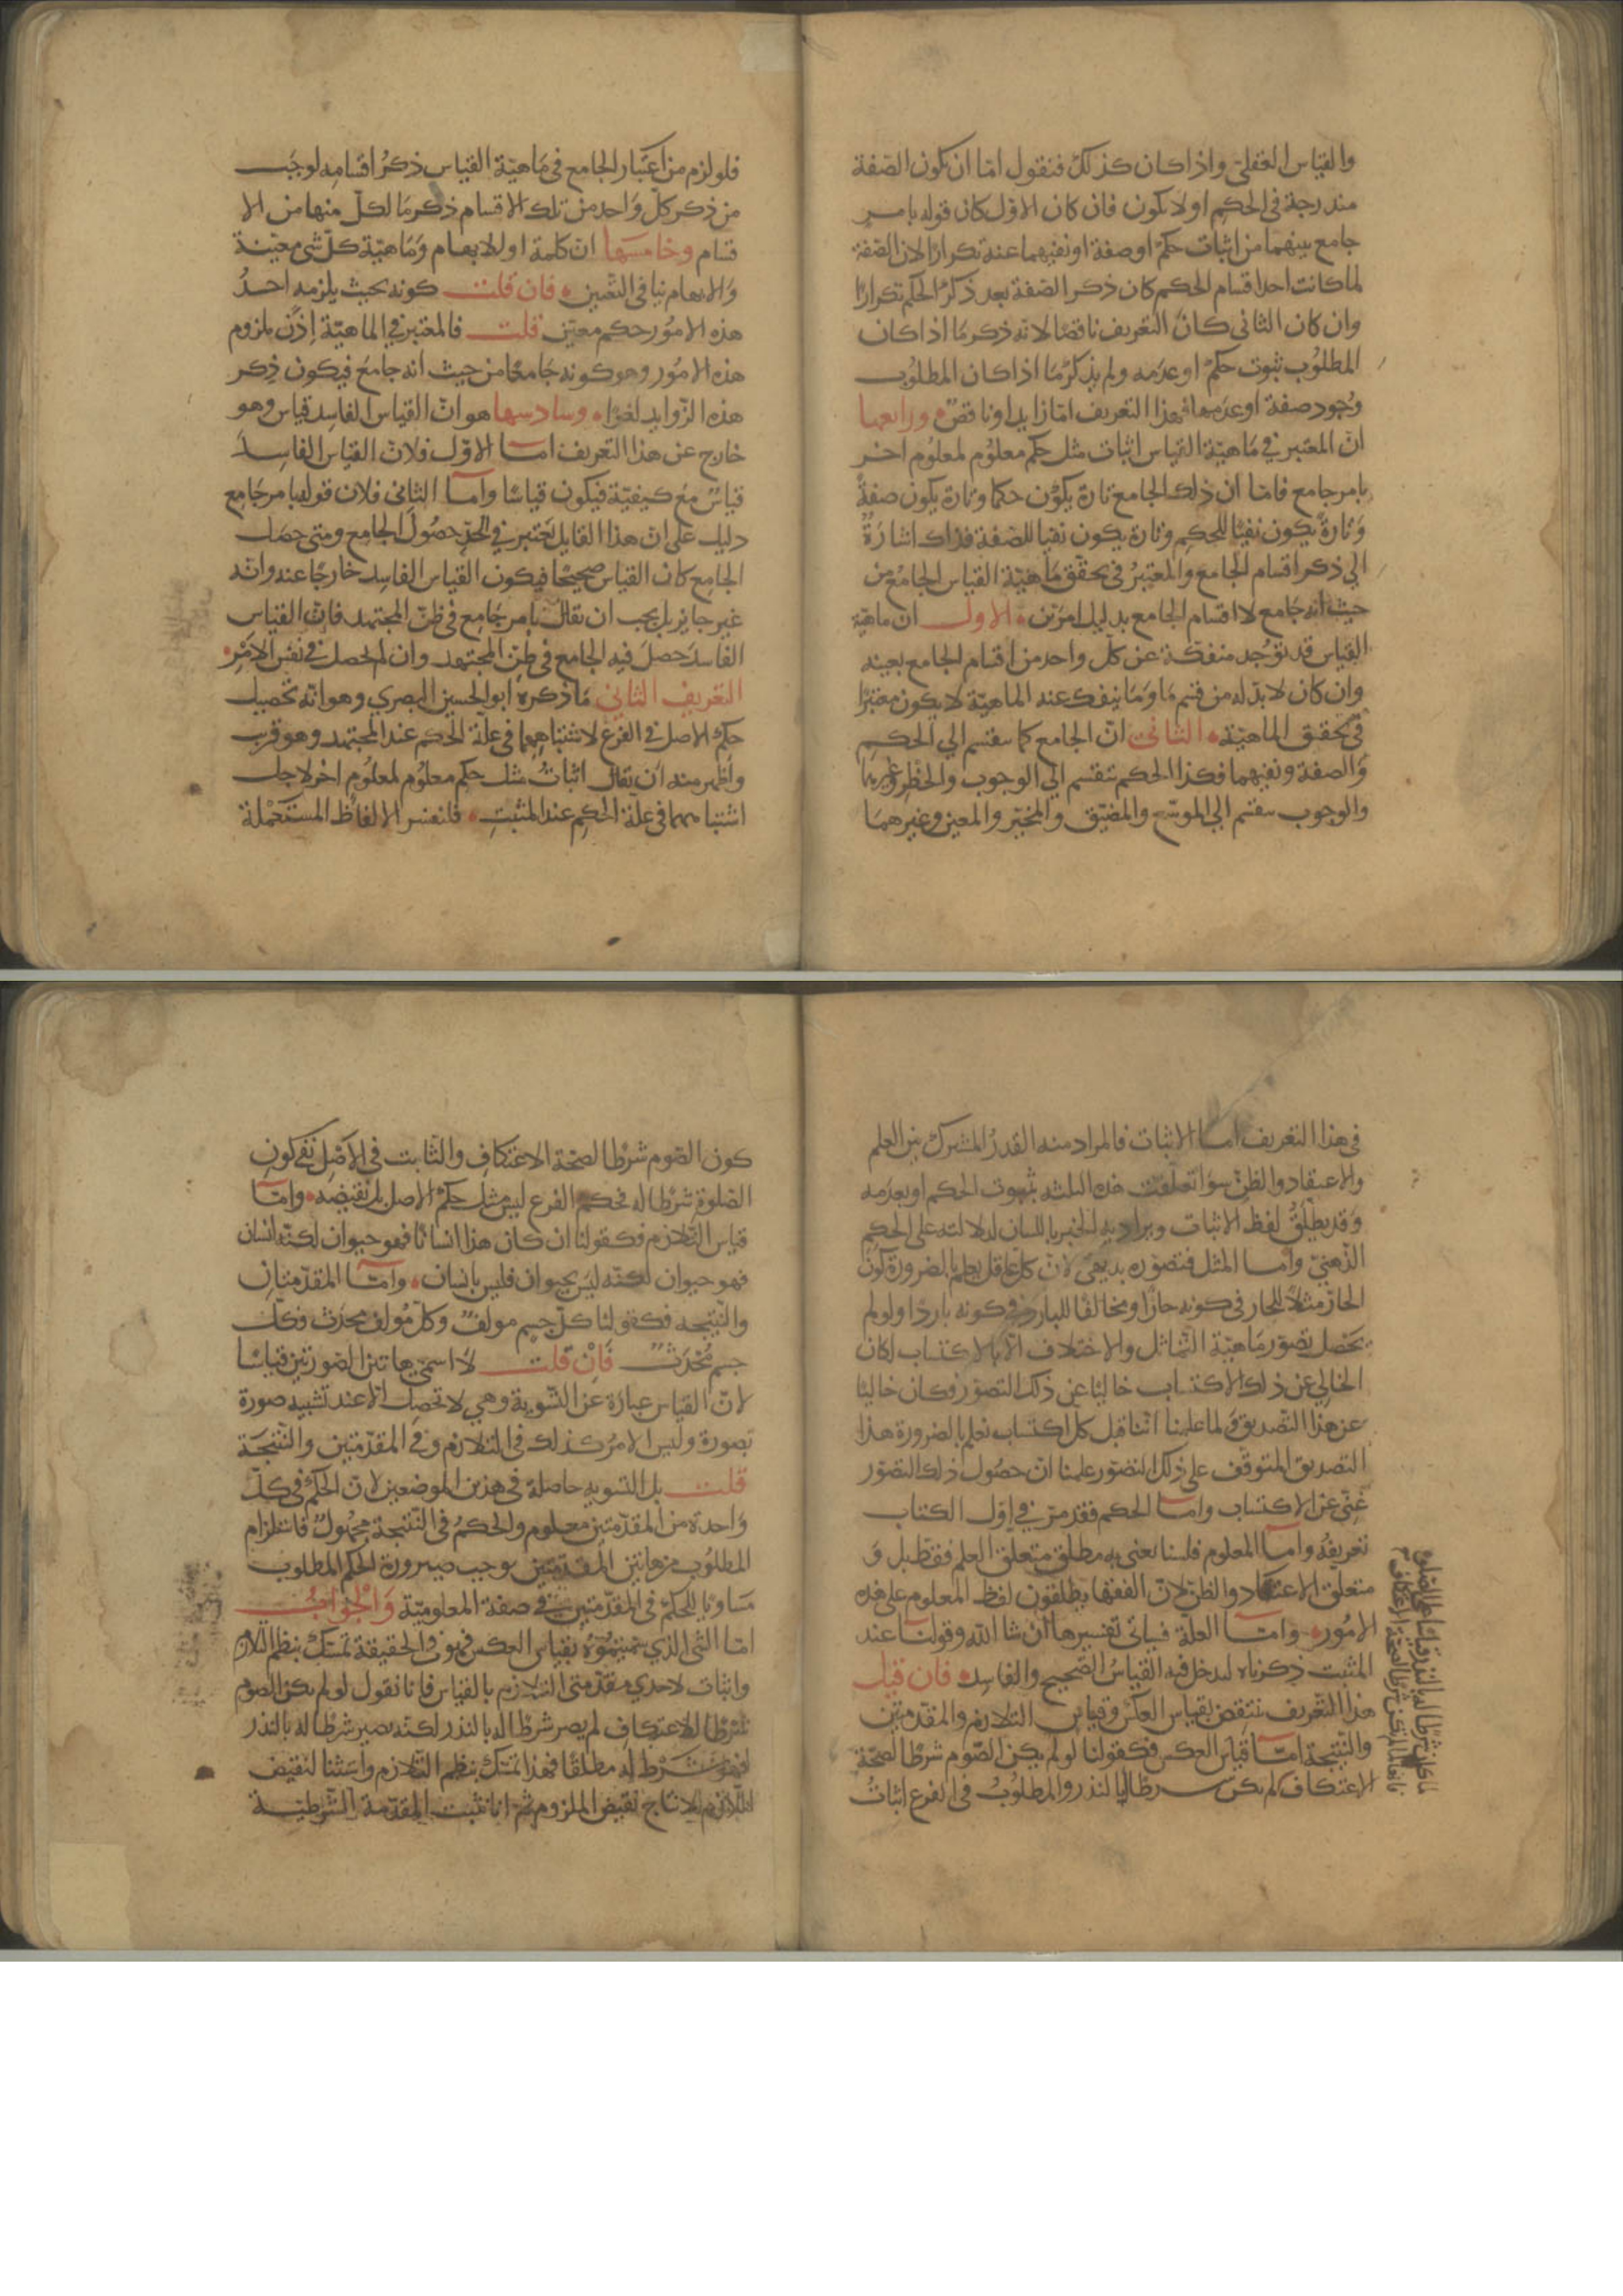 والقياس العقلي واذا كان كذلك فنقول اما ان يكون الصفة
مندرجة في الحكم او لا يكون فان كان الاول كان قوله بامر
جامع بينهما من اثبات حكم او صفة او نفيهما عنه تكرارا لان الصفة
لما كانت احد اقسام الحكم كان ذكر الصفة بعد ذكر الحكم تكرارا
وان كان الثاني كان التعريف ناقصا لانه ذكر ما اذا كان
المطلوب ثبوت حكم او عدمه ولم يذكر ما اذا كان المطلوب
وجود صفة او عدمها فهذا التعريف اما زايد او ناقص ورابعها
ان المعتبر في ماهية القياس اثبات مثل حكم معلوم لمعلوم اخر
بامر جامع فاما ان ذلك الجامع تارة يكون حكما وتارة يكون صفة
وتارة يكون نفيا للحكم وتارة يكون نفيا للصفة فذاك اشارة
الي ذكر اقسام الجامع والمعتبر في تحقق ماهية القياس الجامع من
حيث انه جامع لا اقسام الجامع بدليل امرين الاول ان ماهية
القياس قد توجد منفكة عن كل واحد من اقسام الجامع بعينه
وان كان لا بد له من قسم ما وما ينفك عنه الماهية لا يكون معتبرا
في تحقق الماهية الثاني ان الجامع كما ينقسم الي الحكم
والصفة ونفيهما فكذا الحكم ينقسم الي الوجوب والحظر وغيرهما
والوجوب ينقسم الي الموسع والمضيق والمخير والمعين وغيرهما
فلو لزم من اعتبار الجامع في ماهية القياس ذكر اقسامه لوجب
من ذكر كل واحد من تلك الاقسام ذكر ما لكل منها من الا
قسام وخامسها ان كلمة او للابهام وماهية كل شي معينة
والابهام ينافي التعيين فان قلت كونه بحيث يلزمه احد
هذه الامور حكم معين قلت فالمعتبر في الماهية اذن ملزوم
هذه الامور وهو كونه جامعا من حيث انه جامع فيكون ذكر
هذه الزوايد لغوا وسادسها هو ان القياس الفاسد قياس وهو
خارج عن هذا التعريف اما الاول فلان القياس الفاسد
قياس مع كيفية فيكون قياسا واما الثاني فلان قوله بامر جامع
دليل على ان هذا القايل يعتبر في الحد حصول الجامع ومتى حصل
الجامع كان القياس صحيحا فيكون القياس الفاسد خارجا عنه وانه
غير جايز بل يجب ان يقال بامر جامع في ظن المجتهد فان القياس
الفاسد حصل فيه الجامع في ظن المجتهد وان لم يحصل في نفس الامر
التعريف الثاني ما ذكره ابو الحسين البصري وهو انه تحصيل
حكم الاصل في الفرع لاشتباههما في علة الحكم عند المجتهد وهو قريب
واظهر منه ان يقال اثبات مثل حكم معلوم لمعلوم اخر لاجل
اشتباههما في علة الحكم عند المثبت فلنفسر الالفاظ المستعملة
في هذا التعريف اما الاثبات فالمراد منه القدر المشترك بين العلم
والاعتقاد والظن سوا تعلقت هذه الثلثه بثبوت الحكم او بعدمه
وقد يطلق لفظ الاثبات ويراد به الخبر باللسان لدلالته على الحكم
الذهني واما المثل فتصوره بديهي لان كل عاقل يعلم بالضرورة كون
الحار مثلا للحار في كونه حارا ومخالفا للبارد في كونه باردا ولو لم
يحصل تصور ماهية التماثل والاختلاف الا بالاكتساب لكان
الخالي عن ذلك الاكتساب خاليا عن ذلك التصور فكان خاليا
عن هذا التصديق فلما علمنا اننا قبل كل اكتساب نعلم بالضرورة هذا
التصديق المتوقف على ذلك التصور علمنا ان حصول ذلك التصور
غني عن الاكتساب واما الحكم فقد مر في اول الكتاب
تعريفه واما المعلوم فلسنا نعني به مطلق متعلق العلم فقط بل و
متعلق الاعتقاد والظن لان الفقها يطلقون لفظ المعلوم على هذه
الامور واما العلة فسياتي تفسيرها ان شا الله وقولنا عند
المثبت ذكرناه ليدخل فيه القياس الصحيح والفاسد فان قيل
هذا التعريف ينتقض بقياس العكس وقياس التلازم والمقدمتين
والنتيجة اما قياس العكس فكقولنا لو لم يكن الصوم شرطا لصحة
الاعتكاف لم يكن شرطا له بالنذر والمطلوب في الفرع اثبات
كون الصوم شرطا لصحة الاعتكاف والثابت في الاصل نفي كون
الصلوة شرطا له فحكم الفرع ليس مثل حكم الاصل بل نقيضه واما
قياس التلازم فكقولنا ان كان هذا انسانا فهو حيوان لكنه انسان
فهو حيوان لكنه ليس بحيوان فليس بانسان واما المقدمتان
والنتيجه فكقولنا كل جسم مولف وكل مولف محدث فكل
جسم محدث فان قلت لا اسمي هاتين الصورتين قياسا
لان القياس عبارة عن التسوية وهي لا تحصل الا عند تشبيه صورة
بصورة وليس الامر كذلك في التلازم وفي المقدمتين والنتيجة
قلت بل التسويه حاصلة في هذين الموضعين لان الحكم في كل
واحدة من المقدمتين معلوم والحكم في النتيجة مجهول فاستلزام
المطلوب من هاتين المقدمتين يوجب صيرورة الحكم المطلوب
مساويا للحكم في المقدمتين في صفة المعلومية والجواب
اما الشي الذي سميتموه بقياس العكس فهو في الحقيقة تمسك بنظم التلازم
واثبات لاحدي مقدمتي التلازم بالقياس فانا نقول لو لم يكن الصوم
شرطا للاعتكاف لم يصر شرطا له بالنذر لكنه يصير شرطا له بالنذر
فهو شرط له مطلقا فهذا تمسك بنظم التلازم واستثنا لنقيض
اللازم لانتاج نقيض الملزوم ثم انا نثبت المقدمة الشرطية